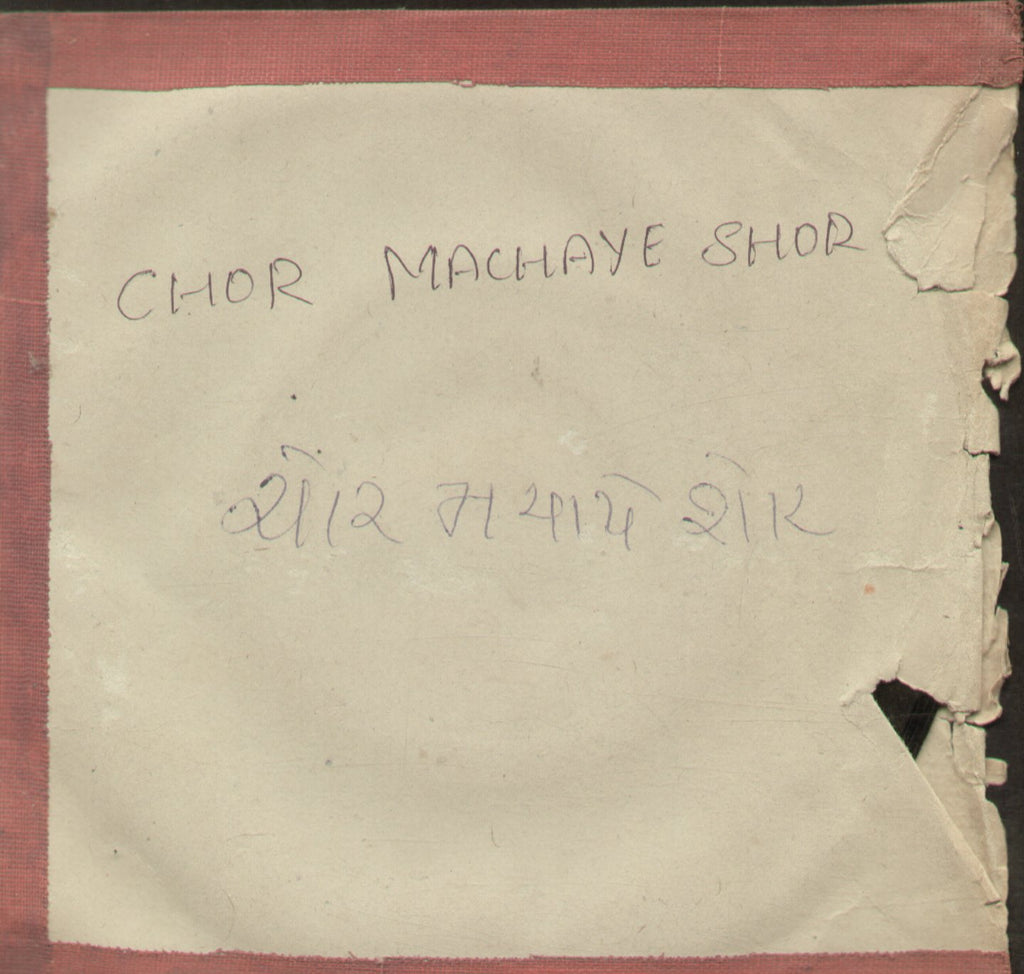 CHOR MACHAYE SHOR
ચોર મચાયે શોર